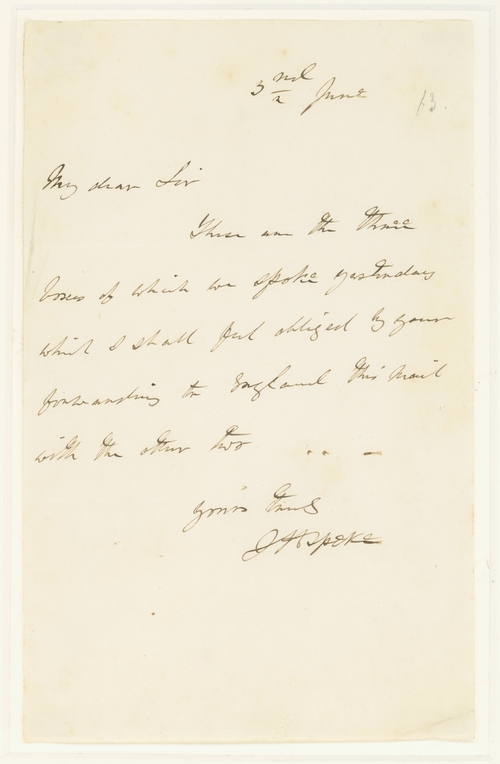 2nd June
13.
My dear Sir
These are the three
boxes of which we spoke yesterday
which I shall feel obliged by your
forwarding to England this Mail
with the other two . . —
yours truly
J H Speke